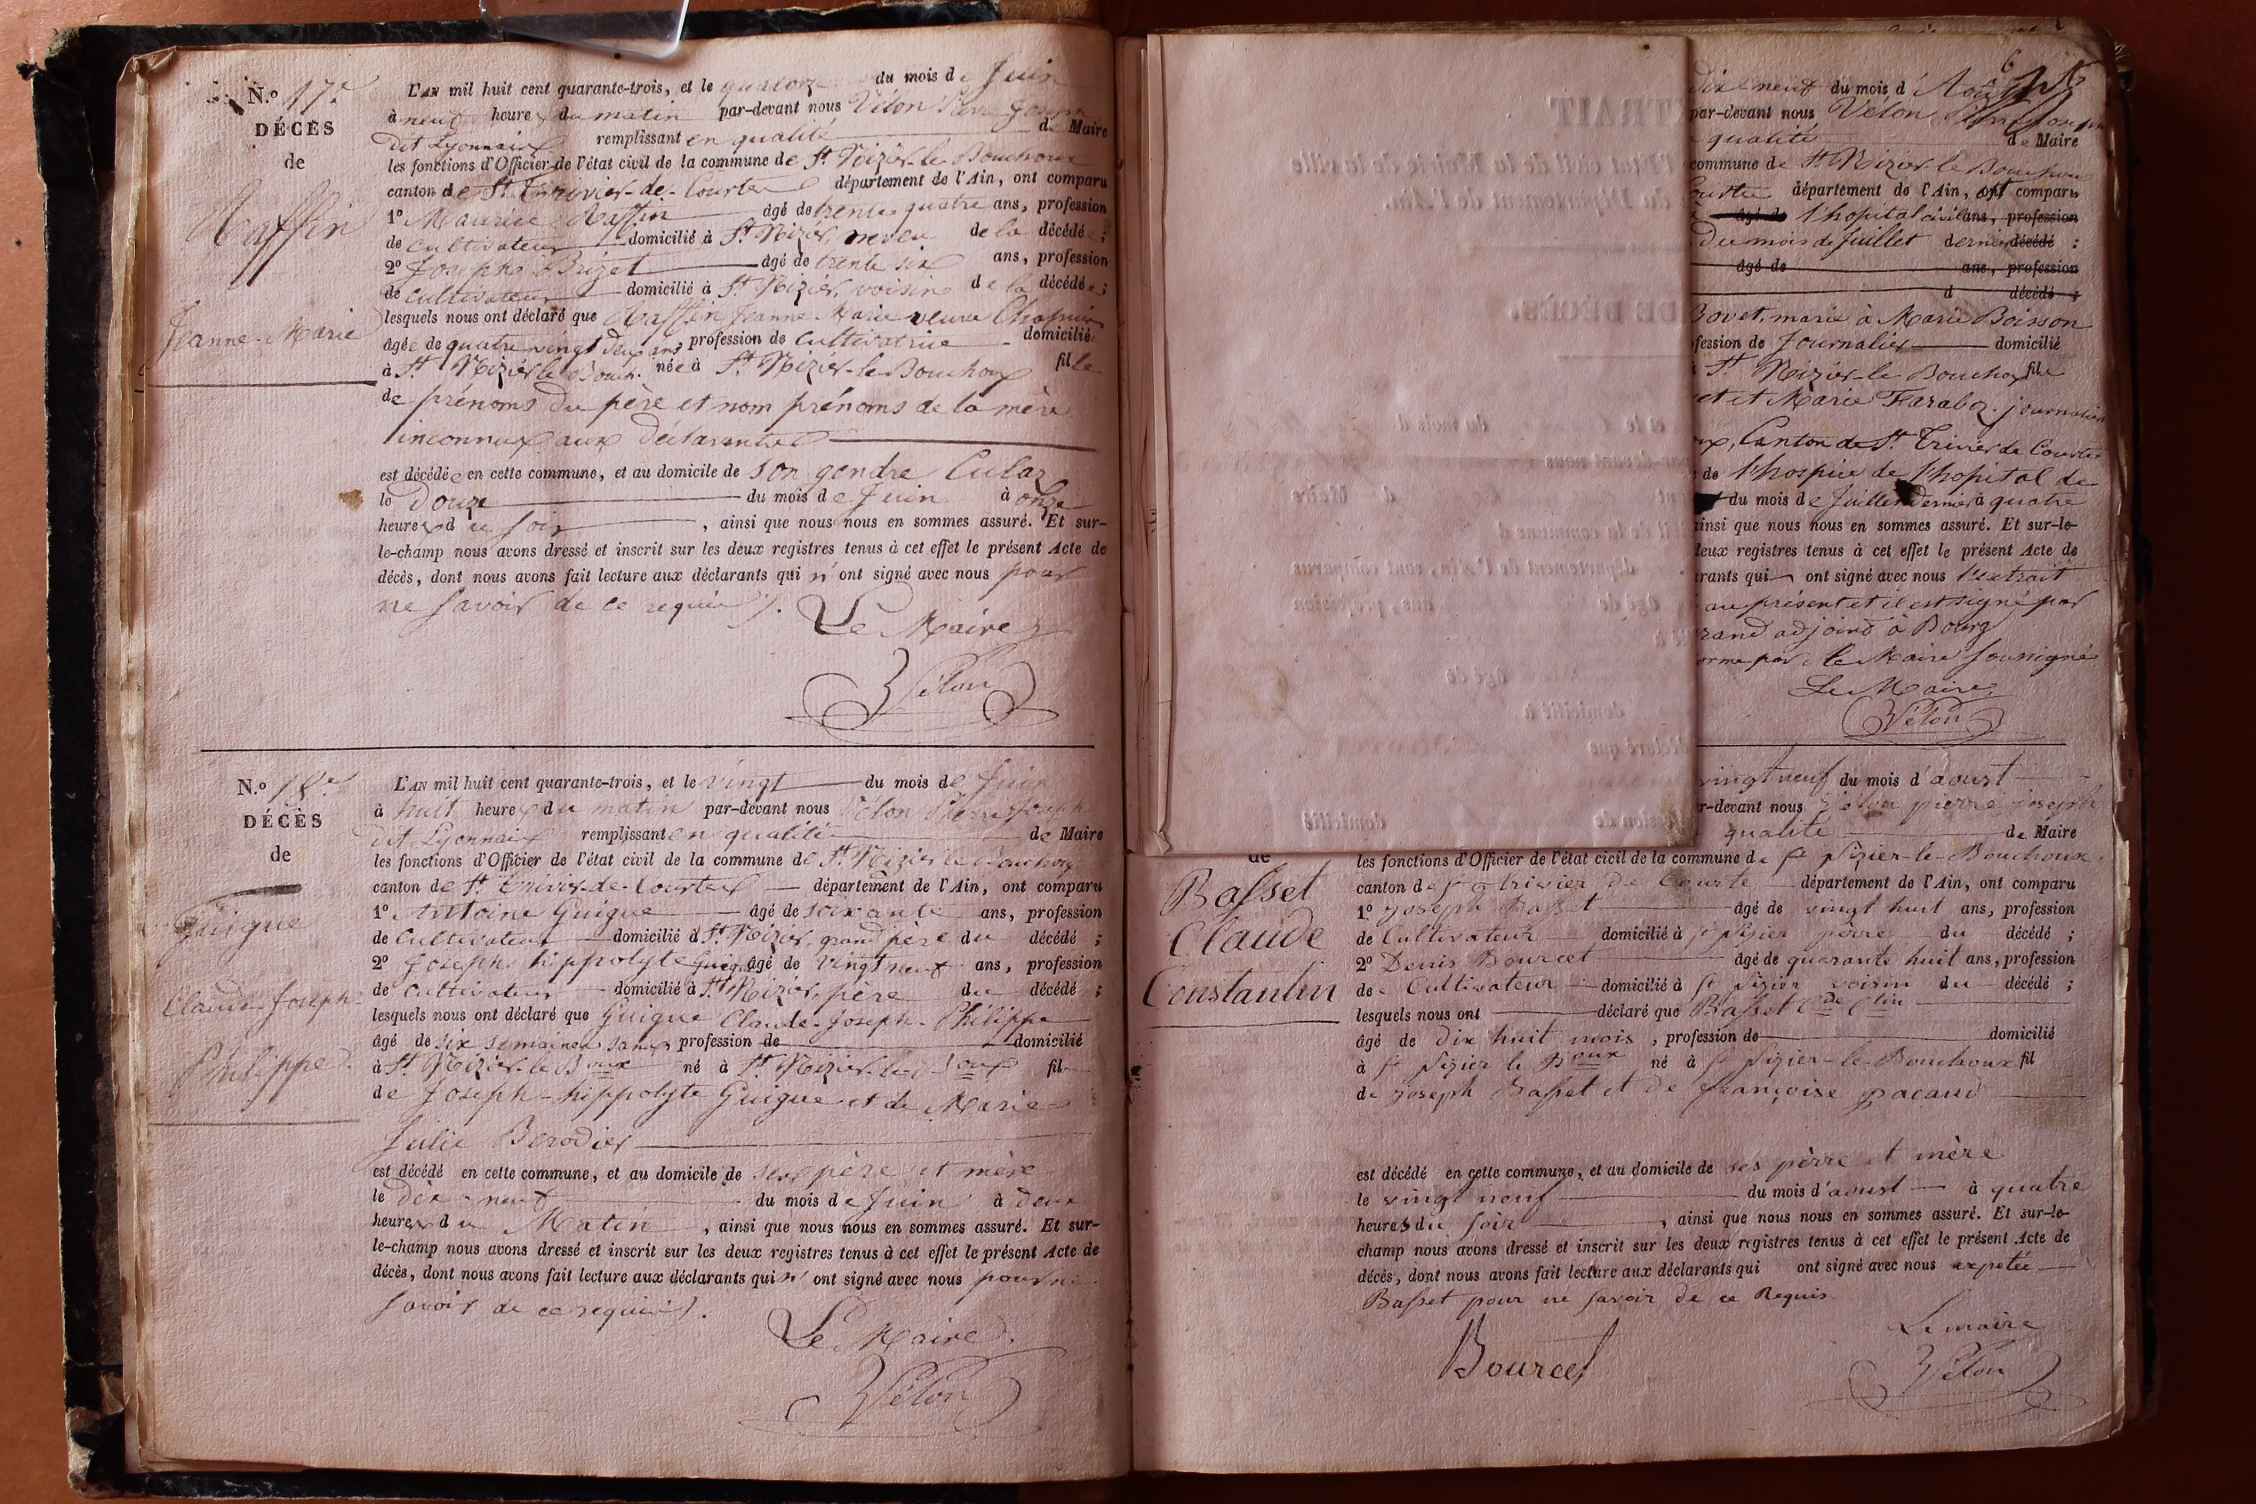 N.º 17.e
DÉCÈS
de
Raffin
Jeanne-Marie
L'AN mil huit cent quarante-trois, et le quatorze du mois de Juin
à neuf heures du matin par-devant nous Vélon Pierre Joseph
dit Lyonnais remplissant en qualité de Maire
les fonctions d'Officier de l'état civil de la commune de St. Nizier-le-Bouchoux
canton de St. Trivier-de-Courtes département de l'Ain, ont comparu
1º Maurice Raffin âgé de trente quatre ans, profession
de cultivateur domicilié à St. Nizier, neveu de la décédée ;
2º Joseph Brizet âgé de trente six ans, profession
de cultivateur domicilié à St. Nizier, voisin de la décédée ;
lesquels nous ont déclaré que Raffin Jeanne-Marie veuve
âgée de quatre vingt deux ans profession de Cultivatrice domiciliée
à St. Nizier le Bouch. née à St. Nizier-le-Bouchoux fille
de prénoms du père et nom prénoms de la mère
inconnus aux déclarants
est décédée en cette commune, et au domicile de son gendre Cular
le Douze du mois de Juin à onze
heures du soir , ainsi que nous nous en sommes assuré. Et sur-
le-champ nous avons dressé et inscrit sur les deux registres tenus à cet effet le présent Acte de
décès, dont nous avons fait lecture aux déclarants qui n'ont signé avec nous pour
ne savoir de ce requis.
Le Maire
Vélon
N.º 18.e
DÉCÈS
de
Guigue
Claude-Joseph-
Philippe
L'AN mil huit cent quarante-trois, et le vingt du mois de Juin
à huit heures du matin par-devant nous Vélon Pierre Joseph
dit Lyonnais remplissant en qualité de Maire
les fonctions d'Officier de l'état civil de la commune de St. Nizier le Bouchoux
canton de St. Trivier-de-Courtes département de l'Ain, ont comparu
1º Antoine Guigue âgé de soixante ans, profession
de Cultivateur domicilié à St. Nizier, grand père du décédé ;
2º Joseph hippolyte Guigue âgé de vingt neuf ans, profession
de cultivateur domicilié à St. Nizier, père du décédé ;
lesquels nous ont déclaré que Guigue Claude-Joseph-Philippe
âgé de six semaines sans profession de domicilié
à St. Nizier-le-Boux né à St. Nizier-le-Boux fils
de Joseph-hippolyte Guigue et de Marie
Julie Berodier
est décédé en cette commune, et au domicile de ses père et mère
le dix-neuf du mois de Juin à deux
heures du Matin , ainsi que nous nous en sommes assuré. Et sur-
le-champ nous avons dressé et inscrit sur les deux registres tenus à cet effet le présent Acte de
décès, dont nous avons fait lecture aux déclarants qui n'ont signé avec nous pour ne
savoir de ce requis.
Le Maire
Vélon
dix neuf du mois d'Août
par-devant nous Vélon Pierre Joseph
qualité de Maire
commune de St. Nizier le Bouchoux
Courtes département de l'Ain, ont comparu
âgé de l'hopital civil ans, profession
du mois de Juillet dernier décédé ;
âgé de ans, profession
d décédé ;
Bovet, marié à Marie Boisson
fession de Journalier domicilié
à St. Nizier-le Bouchoux fils
et et Marie Faraboz. journaliers
oux, Canton de St. Trivier de Courtes
de l'hospice de l'hopital de
du mois de Juillet dernier à quatre
ainsi que nous nous en sommes assuré. Et sur-le-
deux registres tenus à cet effet le présent Acte de
arants qui ont signé avec nous l'extrait
au présent et il est signé par
rand adjoint à Bourg
orme par le Maire soussigné
Le Maire
Vélon
de
Basset
Claude
Constantin
vingt neuf du mois d'aoust
r-devant nous Vélon pierre joseph
qualité de Maire
les fonctions d'Officier de l'état civil de la commune de St Nizier-le-Bouchoux
canton de St trivier de Courte département de l'Ain, ont comparu
1º joseph Basset âgé de vingt huit ans, profession
de Cultivateur domicilié à St Nizier pèrre du décédé ;
2º Denis Bourcet âgé de quarante huit ans, profession
de Cultivateur domicilié à St Nizier voisin du décédé ;
lesquels nous ont déclaré que Basset Cde Ctin
âgé de dix huit mois , profession de domicilié
à St Nizier le Boux né à St Nizier-le-Bouchoux fil
de joseph Basset et de françoise pacaud
est décédé en cette commune, et au domicile de ses pèrre et mère
le vingt neuf du mois d'aoust à quatre
heures du soir , ainsi que nous nous en sommes assuré. Et sur-le-
champ nous avons dressé et inscrit sur les deux registres tenus à cet effet le présent Acte de
décès, dont nous avons fait lecture aux déclarants qui ont signé avec nous expetée
Basset pour ne savoir de ce Requis
Bourcet
Le maire
Vélon